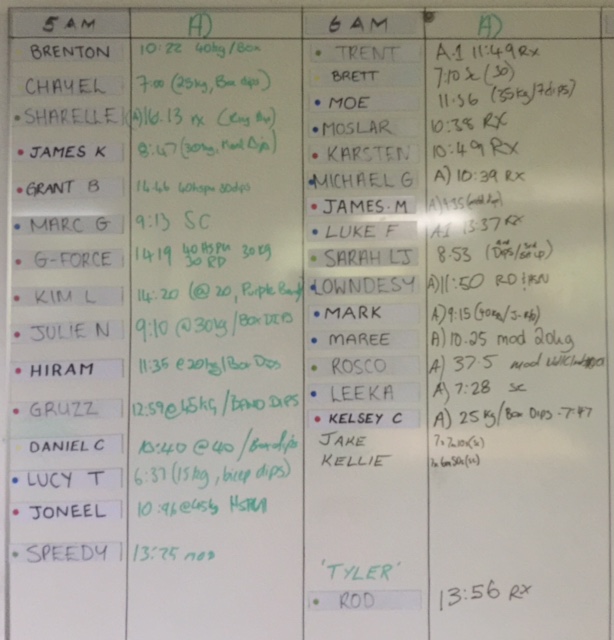 5 AM A) 6 AM A)
BRENTON 10:22 40kg/Box
CHAYEL 7:00 (25kg, Box dips)
SHARELLE (A) 16.13 rx
JAMES K 8:47 (30kg,
GRANT B 14:46
MARC G 9:13 SC
G-FORCE 14:19 40 HSPU 30 KG
30 RD
KIM L 14:20 (@ 20, Purple Band)
JULIE N 9:10 @30kg/Box DIPS
HIRAM 11:35 @20kg/Box Dips
GRUZZ 12:59 @45KG / BAND DIPS
DANIEL C 10:40 @40 /Box dips
LUCY T 6:37 (15kg, bicep dips)
JONEEL 10:46 @45kg
SPEEDY 13:25 mod
TRENT A.1 11:49 RX
BRETT 7:10 SC (30)
MOE 11:56 (35kg/7dips)
MOSLAR 10:38 RX
KARSTEN 10:49 RX
MICHAEL G A) 10:39 RX
JAMES.M A)
LUKE F A.1 13:37 RX
SARAH LJ 8.53
LOWNDESY A) 11:50
MARK A) 9:15
MAREE A) 10.25 mod 20kg
ROSCO A) 37.5 mod
LEEKA A) 7:28 SC
KELSEY C A) 25 Kg/Box Dips - 7:47
JAKE
KELLIE
'TYLER'
ROD 13:56 RX